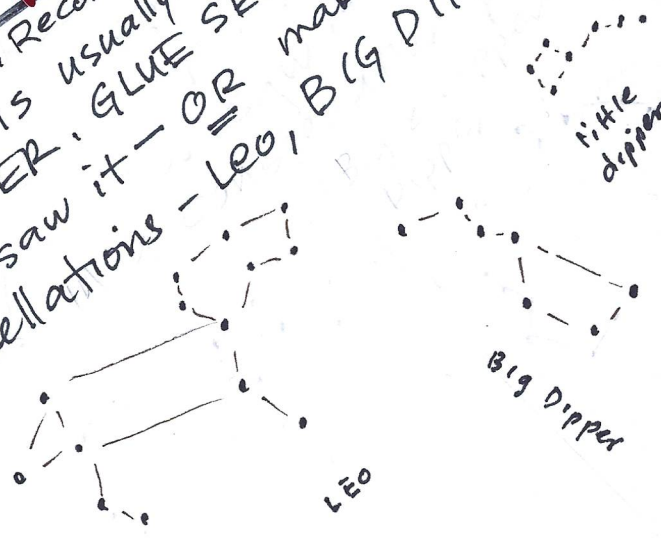 Reco
is usually
ER. GLUE SE
saw it - OR ma
ellations - Leo, BIG DI
little
dipper
Big Dipper
LEO